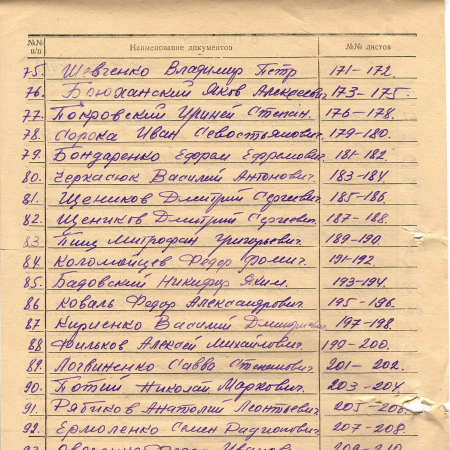 №№ п/п Наименование документов №№ листов
75. Шевченко Владимир Петр 171-172.
76. Алексеевич 173-175.
77. Покровский Ириней Степан. 176-178.
78. Сорока Иван Севостьянович. 179-180.
79. Бондаренко Ефрем Ефремович. 181-182.
80. Черкасюк Василий Антонович. 183-184
81. Щеников Дмитрий Сергеевич. 185-186.
82. Щеников Дмитрий Сергеевич. 187-188.
83. Митрофан Григорьевич. 189-190.
84. Коломойцев Федор Фомич. 191-192
85. Бадовский Никифир Яким. 193-194.
86 Коваль Федор Александрович. 195-196.
87 Кириенко Василий Дмитриевич. 197-198.
88 Фильков Алексей Михайлович. 199-200.
89. Логвиненко Савва Степанович. 201-202.
90. Потий Николай Маркович. 203-204.
91. Рябиков Анатолий Леонтьевич. 205-206.
92. Ермоленко Семен Радионович. 207-208.